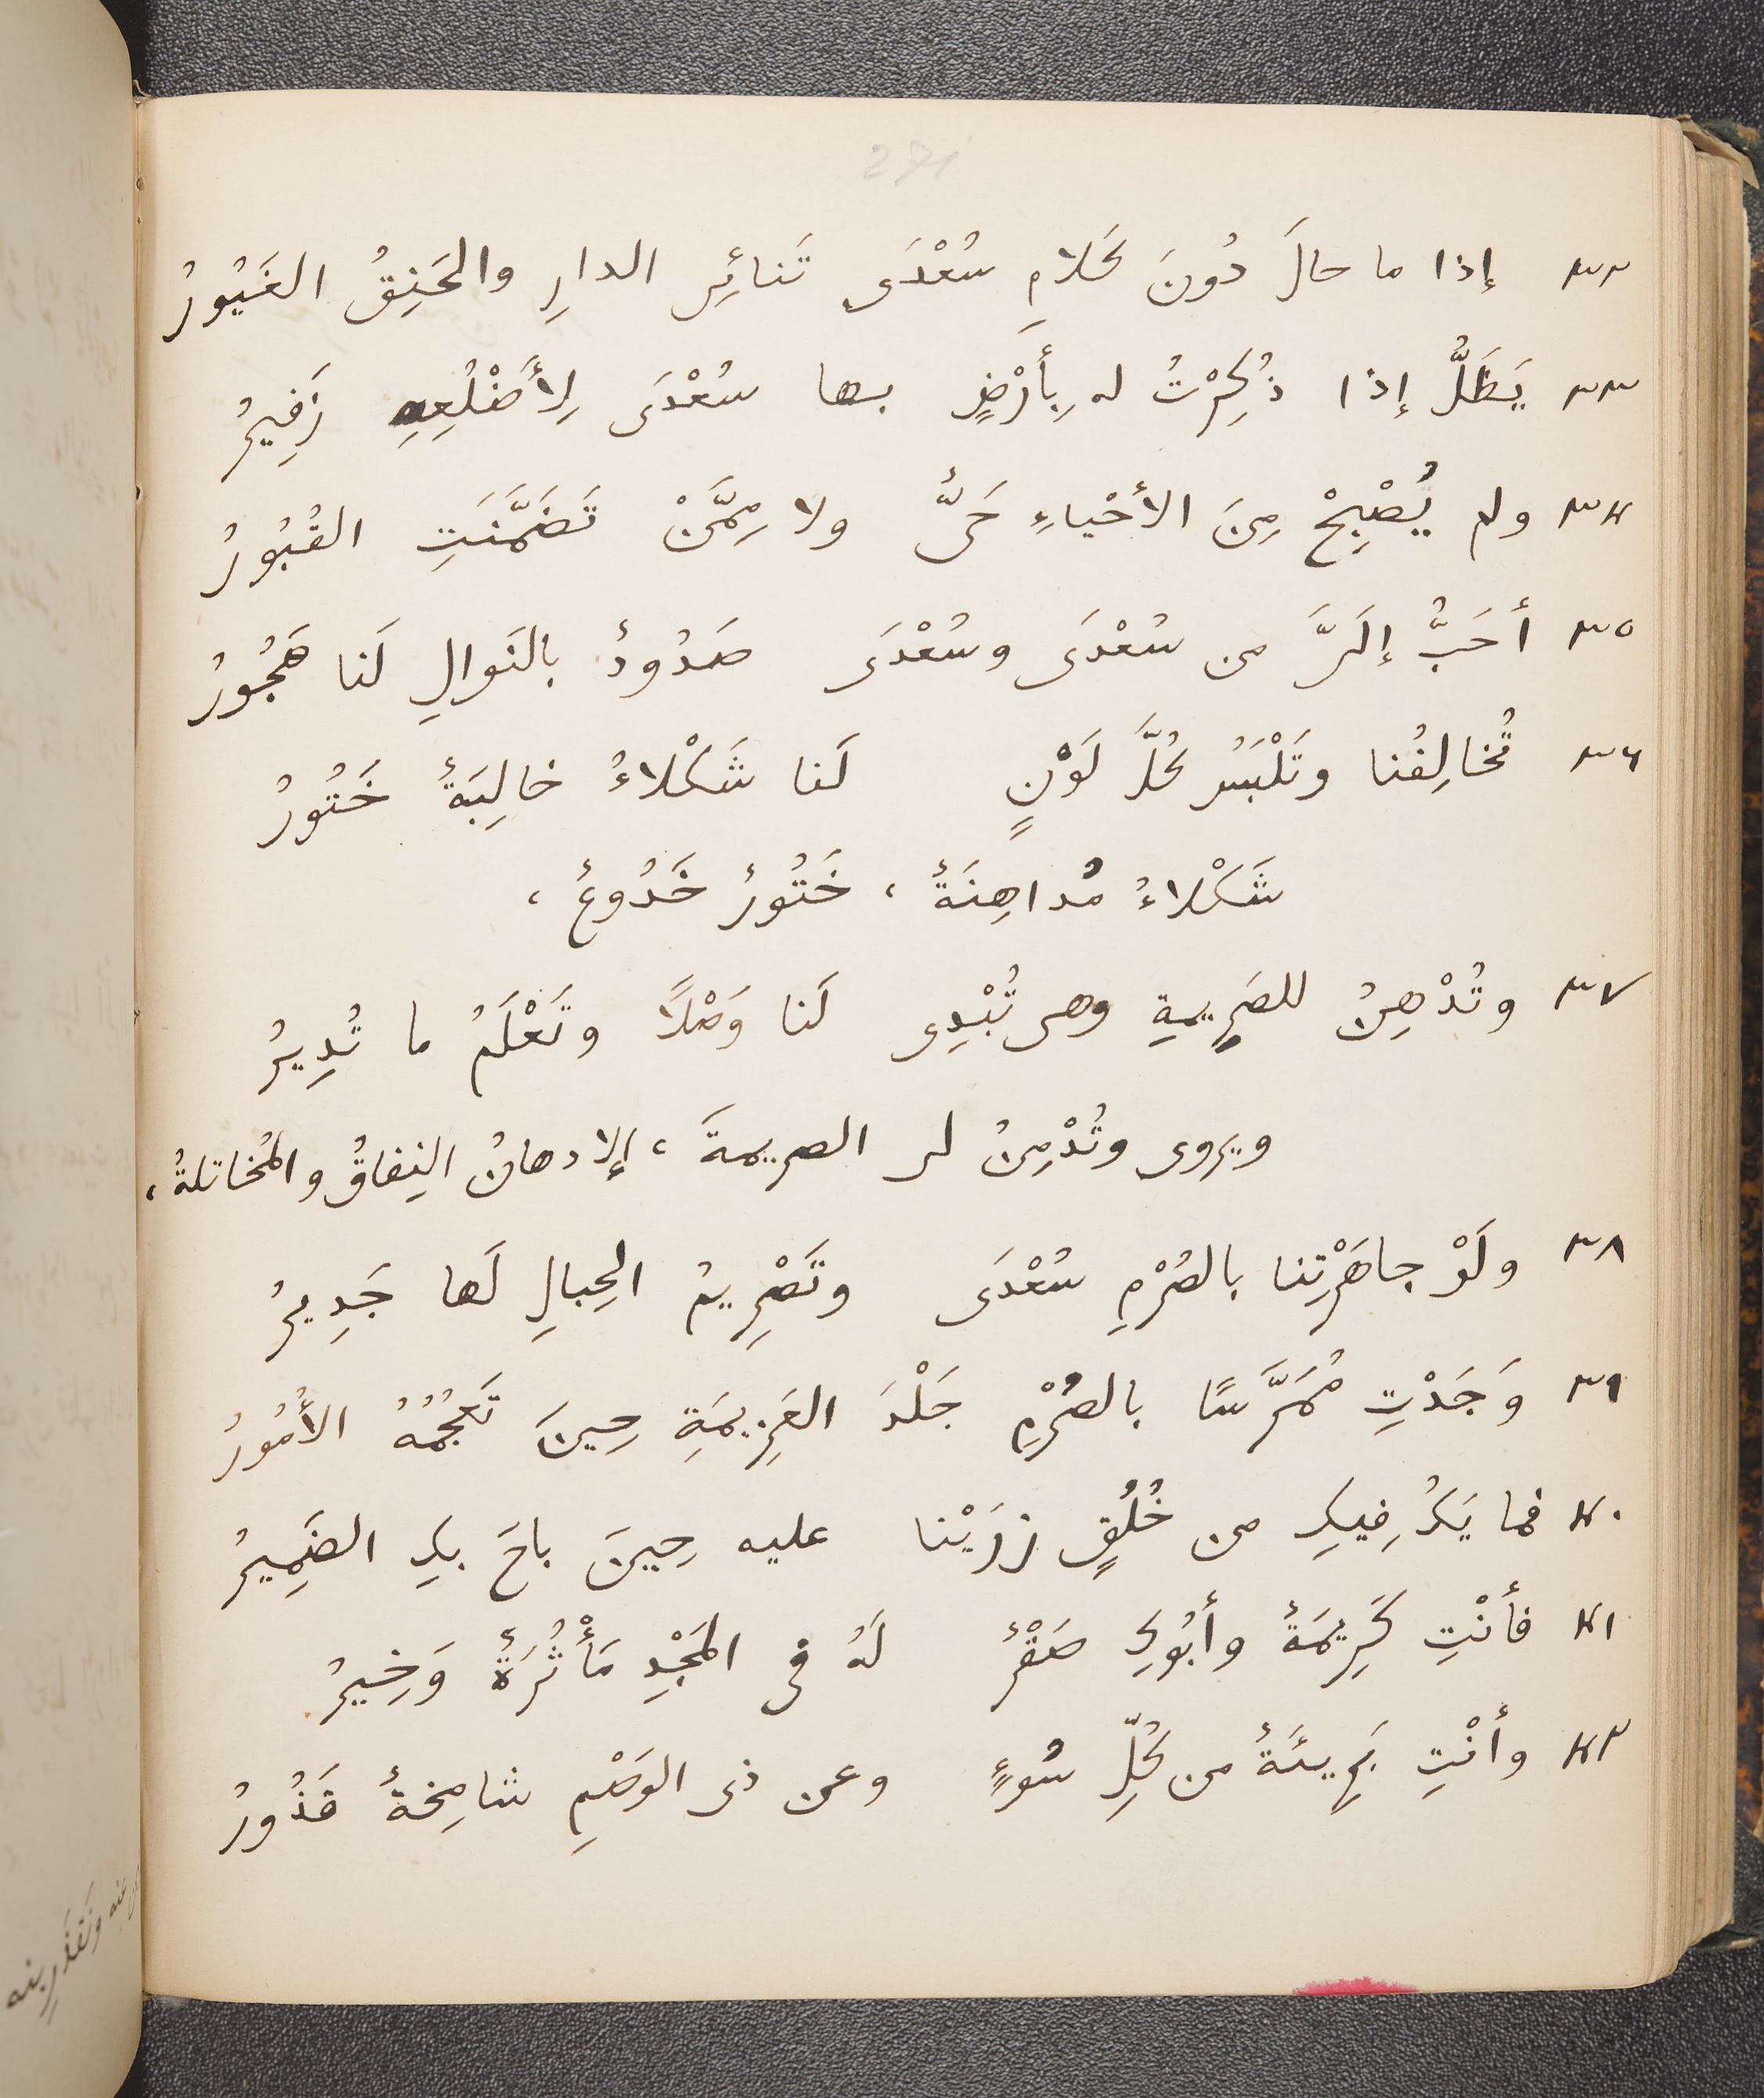 271
٣٢ إذا ما حالَ دُونَ كَلامِ سُعْدَى تَنائِى الدارِ والحَنِقُ الغَيُورُ
٣٣ يَظَلُّ إذا ذُكِرْتُ له بِأَرْضٍ بها سُعْدَى لِأَضْلُعِهِ زَفِيرُ
٣٤ ولم يُصْبِحْ مِنَ الأَحْياءِ حَىٌّ ولا مِمَّنْ تَضَمَّنَتِ القُبُورُ
٣٥ أحَبَّ إلَىَّ من سُعْدَى وسُعْدَى صَدُودٌ بالنَوالِ لَنا هَجُورُ
٣٦ تُخالِفُنا وتَلْبَسُ كُلَّ لَوْنٍ لَنا شَكْلاءُ خالِبَةٌ خَتُورُ
شَكْلاءُ مُداهِنَةٌ ، خَتُورٌ خَدُوعٌ ،
٣٧ وتُدْهِنُ للصَرِيمةِ وهى تُبْدِى لَنا وَصْلًا وتَعْلَمُ ما تُدِيرُ
ويروى وتُدْمِنُ لى الصريمةَ ، الإدهانُ النِفاقُ والمُخاتلةُ ،
٣٨ ولَوْ جاهَرْتِنا بالصُرْمِ سُعْدَى وتَصْرِيمُ الحِبالِ لَها جَدِيرُ
٣٩ وَجَدْتِ مُمَرَّسًا بالصُرْمِ جَلْدَ العَزِيمَةِ حِينَ تَعْجُمُهُ الأُمُورُ
٤٠ فما يَكُ فِيكِ من خُلُقٍ زرَيْنا عليه حِينَ باحَ بكِ الضَمِيرُ
٤١ فأَنْتِ كَرِيمَةٌ وأبُوكِ صَقْرٌ لَهُ فى المَجْدِ مَأْثُرَةٌ وَخِيرُ
٤٢ وأنْتِ بَرِيئَةٌ من كُلِّ سُوءٍ وعن ذى الوَصْمِ شامِخةٌ قَذُورُ